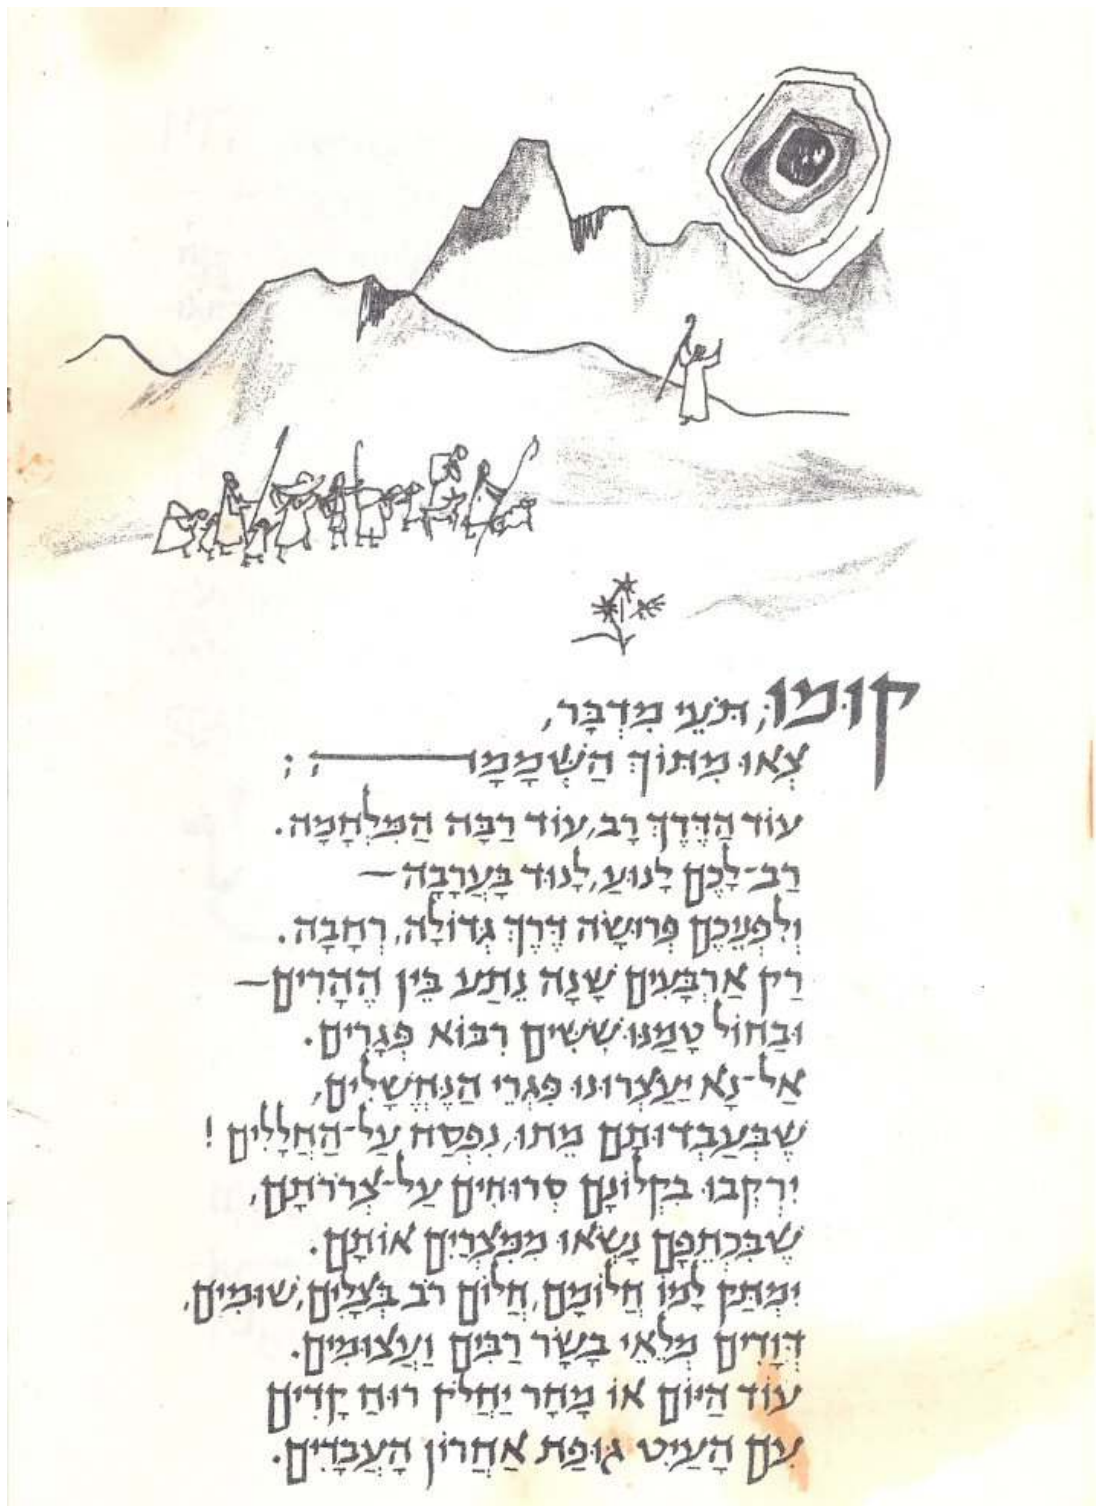 קוּמוּ, תֹּעֵי מִדְבָּר,
צְאוּ מִתּוֹךְ הַשְּׁמָמָה;
עוֹד הַדֶּרֶךְ רָב, עוֹד רַבָּה הַמִּלְחָמָה.
רַב-לָכֶם לָנוּעַ, לָנוּד בָּעֲרָבָה –
וְלִפְנֵיכֶם פְּרוּשָׂה דֶּרֶךְ גְּדוֹלָה, רְחָבָה.
רַק אַרְבָּעִים שָׁנָה נֵתַע בֵּין הֶהָרִים –
וּבַחוֹל טָמַנּוּ שִׁשִּׁים רִבּוֹא פְּגָרִים.
אַל-נָא יַעַצְרוּנוּ פִּגְרֵי הַנֶּחֱשָׁלִים,
שֶׁבְּעַבְדוּתָם מֵתוּ, נִפְסַח עַל-הַחֲלָלִים!
יִרְקְבוּ בִקְלוֹנָם סְרוּחִים עַל-צְרֹרֹתָם,
שֶׁבִּכְתֵפָם נָשְׂאוּ מִמִּצְרַיִם אוֹתָם.
יִמְתַּק לָמוֹ חֲלוֹמָם, חֲלוֹם רֹב בְּצָלִים, שׁוּמִים,
דְּוָדִים מְלֵאֵי בָשָׂר רַבִּים וַעֲצוּמִים.
עוֹד הַיּוֹם אוֹ מָחָר יַחֲלֹק רוּחַ קָדִים
עִם הָעַיִט גּוּפַת אַחֲרוֹן הָעֲבָדִים.